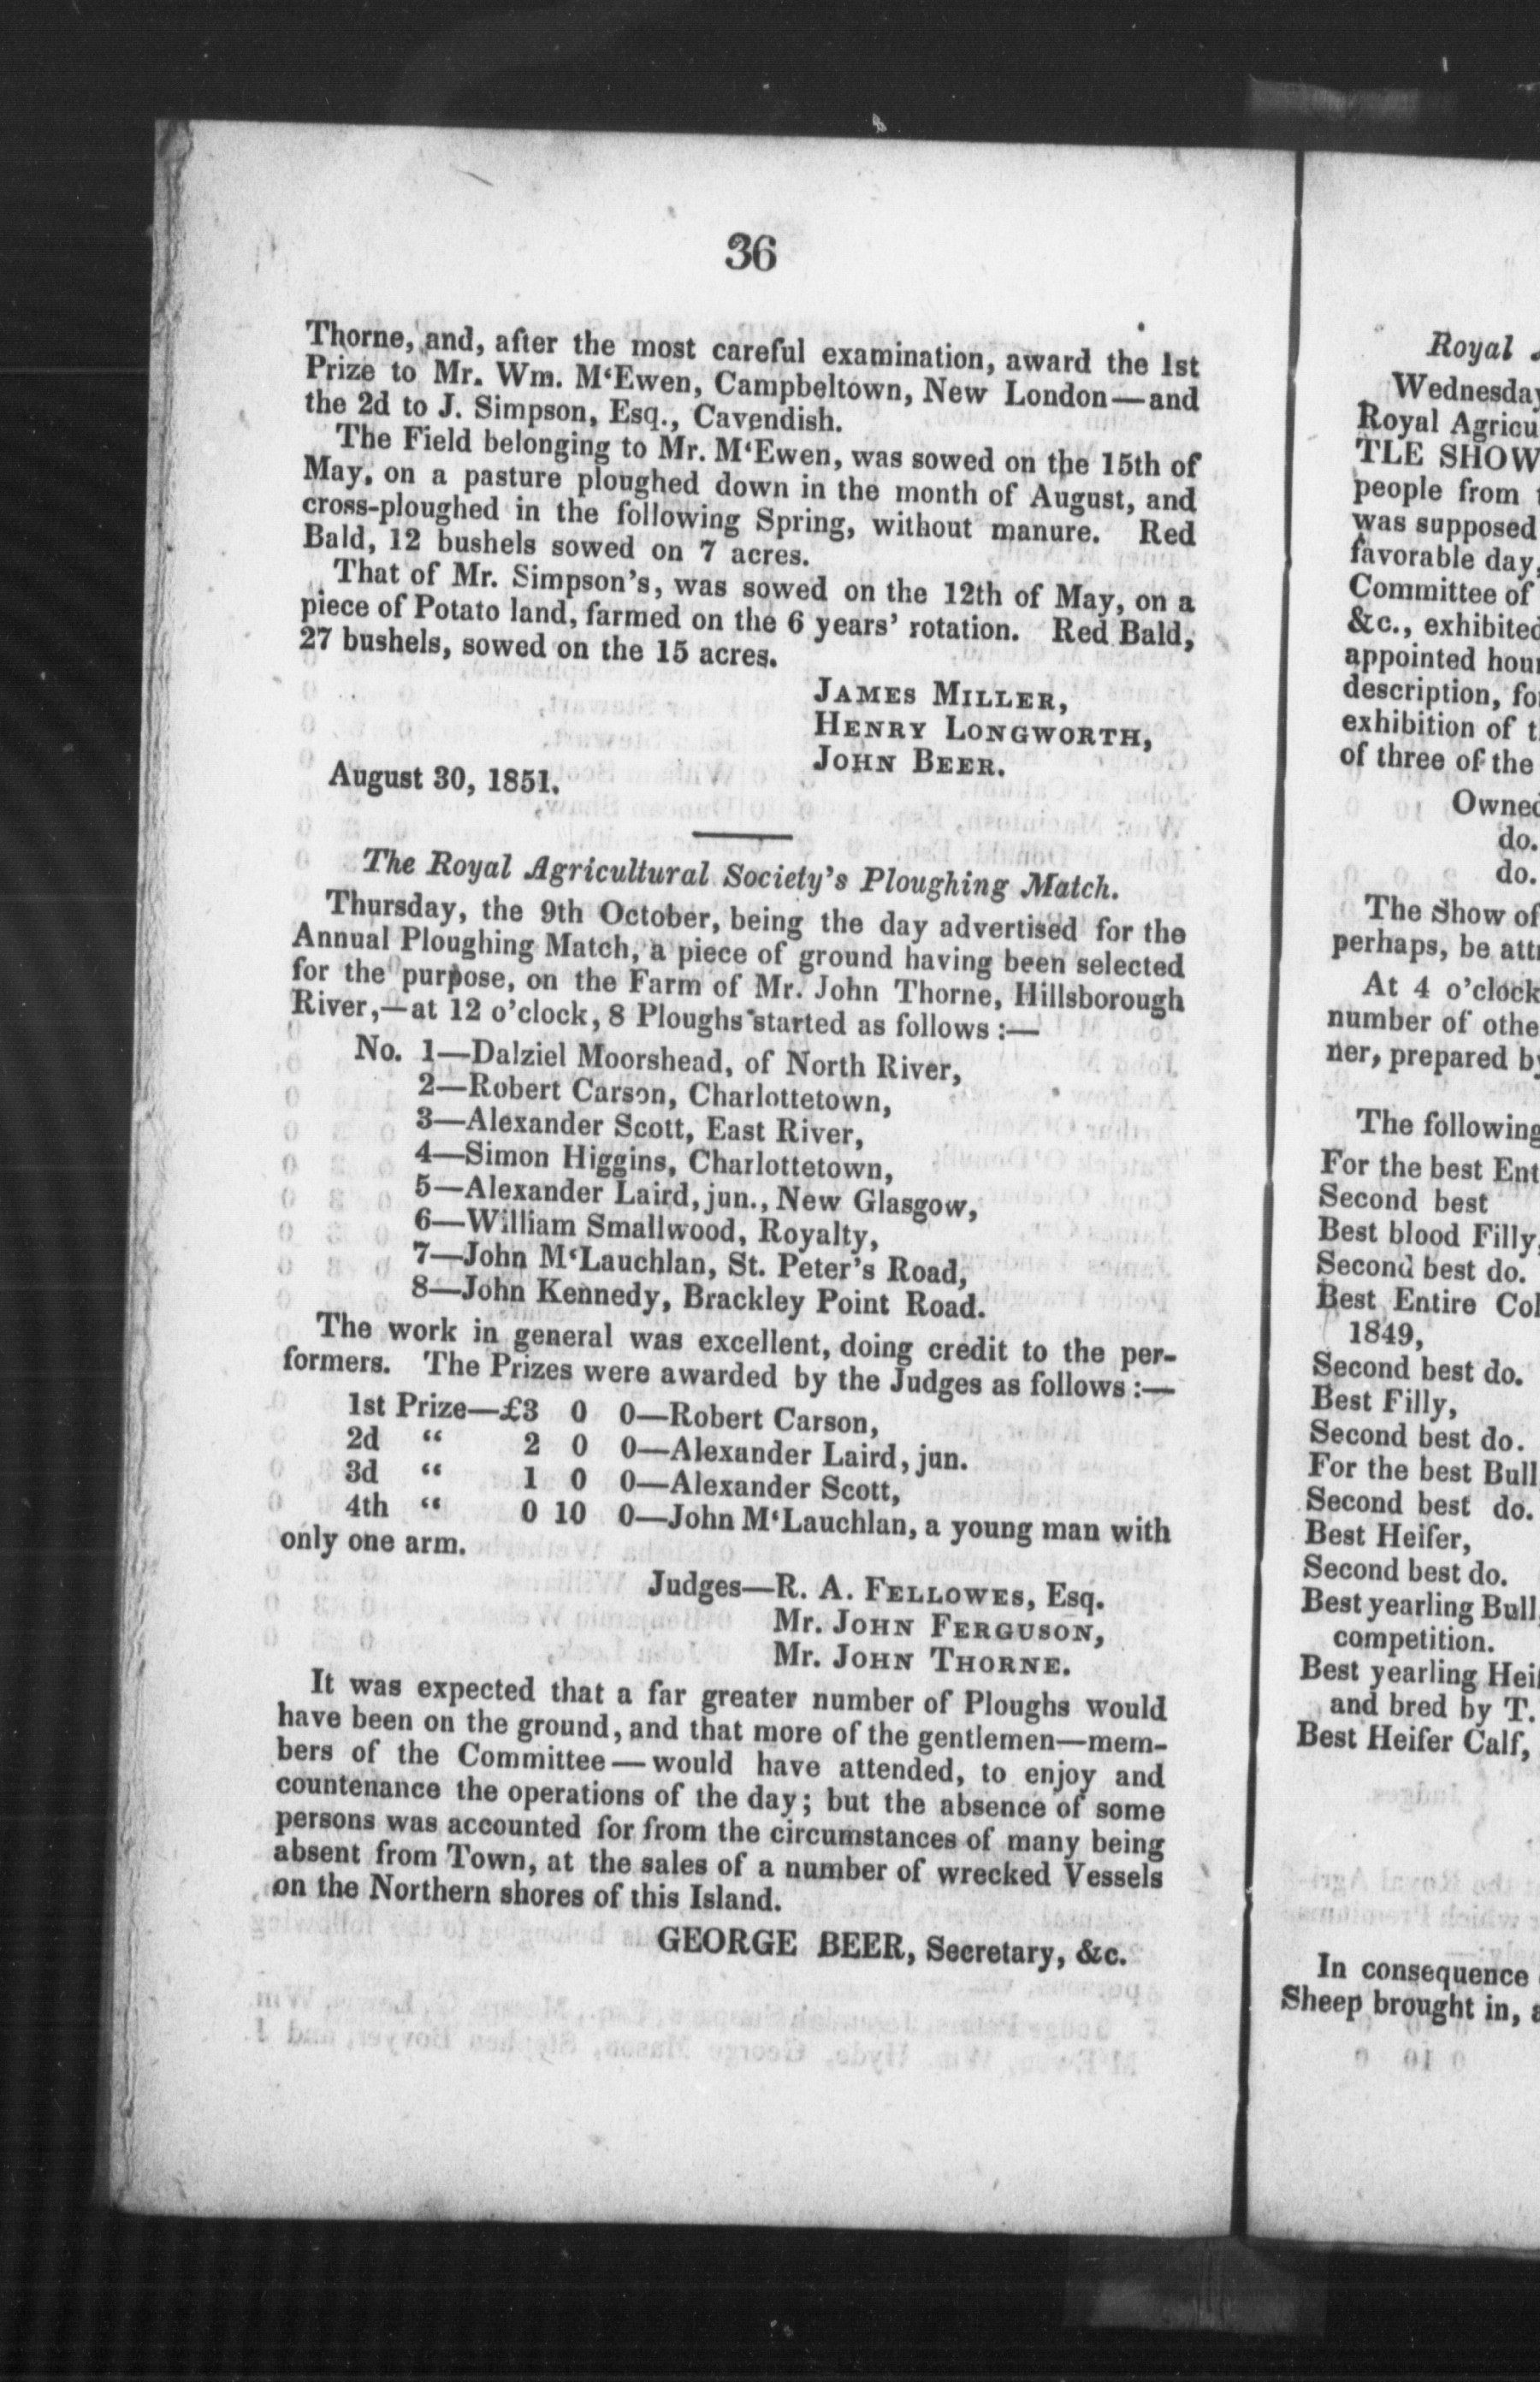 36
Thorne, and, after the most careful examination, award the 1st
Prize to Mr. Wm. M‘Ewen, Campbeltown, New London—and
the 2d to J. Simpson, Esq., Cavendish.
The Field belonging to Mr. M‘Ewen, was sowed on the 15th of
May, on a pasture ploughed down in the month of August, and
cross-ploughed in the following Spring, without manure. Red
Bald, 12 bushels sowed on 7 acres.
That of Mr. Simpson’s, was sowed on the 12th of May, on a
piece of Potato land, farmed on the 6 years’ rotation. Red Bald,
27 bushels, sowed on the 15 acres.
JAMES MILLER,
HENRY LONGWORTH,
JOHN BEER.
August 30, 1851.
The Royal Agricultural Society’s Ploughing Match.
Thursday, the 9th October, being the day advertised for the
Annual Ploughing Match, a piece of ground having been selected
for the purpose, on the Farm of Mr. John Thorne, Hillsborough
River,—at 12 o’clock, 8 Ploughs started as follows :—
No. 1—Dalziel Moorshead, of North River,
2—Robert Carson, Charlottetown,
3—Alexander Scott, East River,
4—Simon Higgins, Charlottetown,
5—Alexander Laird, jun., New Glasgow,
6—William Smallwood, Royalty,
7—John M‘Lauchlan, St. Peter’s Road,
8—John Kennedy, Brackley Point Road.
The work in general was excellent, doing credit to the per-
formers. The Prizes were awarded by the Judges as follows :—
1st Prize—£3 0 0—Robert Carson,
2d “ 2 0 0—Alexander Laird, jun.
3d “ 1 0 0—Alexander Scott,
4th “ 0 10 0—John M‘Lauchlan, a young man with
only one arm.
Judges—R. A. FELLOWES, Esq.
Mr. JOHN FERGUSON,
Mr. JOHN THORNE.
It was expected that a far greater number of Ploughs would
have been on the ground, and that more of the gentlemen—mem-
bers of the Committee—would have attended, to enjoy and
countenance the operations of the day; but the absence of some
persons was accounted for from the circumstances of many being
absent from Town, at the sales of a number of wrecked Vessels
on the Northern shores of this Island.
GEORGE BEER, Secretary, &c.
Royal
Wednesday
Royal Agricu
TLE SHOW
people from
was supposed
favorable day,
Committee of
&c., exhibited
appointed hour
description, fo
exhibition of t
of three of the
Owned
do.
do.
The Show of
perhaps, be att
At 4 o’clock
number of othe
ner, prepared by
The following
For the best Ent
Second best
Best blood Filly,
Second best do.
Best Entire Col
1849,
Second best do.
Best Filly,
Second best do.
For the best Bull
Second best do.
Best Heifer,
Second best do.
Best yearling Bull
competition.
Best yearling Heif
and bred by T.
Best Heifer Calf,
In consequence
Sheep brought in,